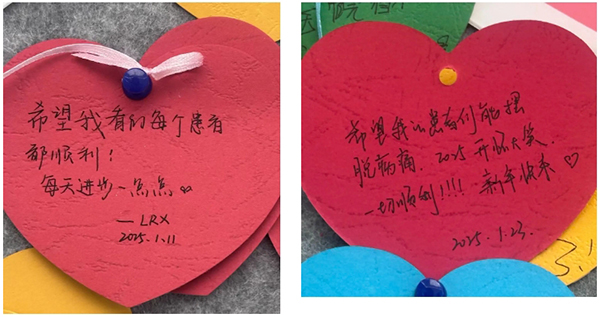 希望我看的每个患者
都顺利！
每天进步一点点♡
—LRX
2025.1.11
希望我的患者们能摆
脱病痛，2025 开怀大笑，
一切顺利!!!! 新年快乐♡
2025.1.23.